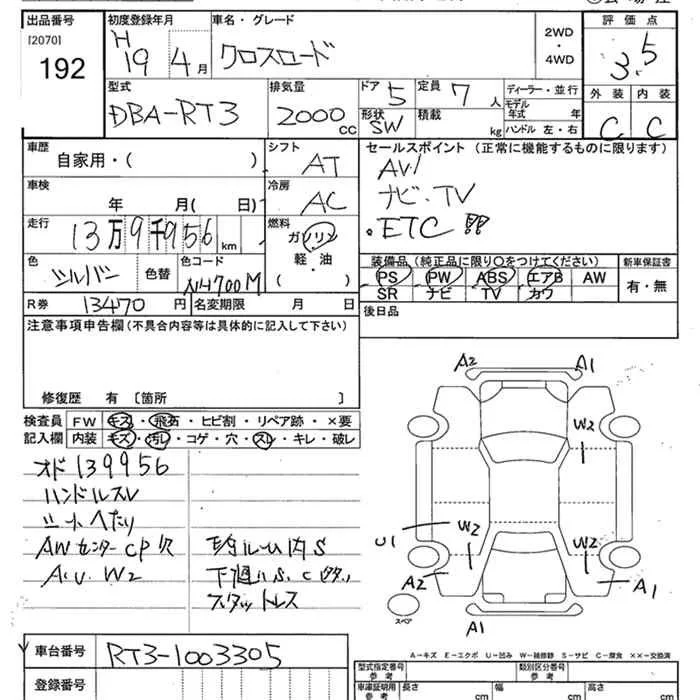 出品番号
[2070]
192
初度登録年月
H
19 4月
車名・グレード
クロスロード
2WD
・
4WD
評価点
3.5
型式
DBA-RT3
排気量
2000 cc
ドア 5
形状 SW
定員 7人
積載 kg
ディーラー・並行
モデル年式 年
ハンドル 左・右
外装 内装
C C
車歴
自家用・( )
シフト AT
セールスポイント (正常に機能するものに限ります)
AW
ナビ・TV
・ETC !!
車検
年 月( 日)
冷房 AC
走行
13万9千956 km
燃料
ガソリン
・
軽・油
( ・ )
色
シルバー
色替
色コード
NH700M
装備品 (純正品に限り○をつけてください)
PS PW ABS エアB AW
SR ナビ TV カワ
新車保証書
有・無
R券 13470 円
名変期限 月 日
後日品
注意事項申告欄(不具合内容等は具体的に記入して下さい)
修復歴 有 〔箇所 〕
検査員
記入欄
FW キズ・飛石・ヒビ割・リペア跡・×要
内装 キズ・汚レ・コゲ・穴・スレ・キレ・破レ
オド139956
ハンドルスレ
シートヘたり
AWセンターCP欠
A.U.W2
室内ルーム内S
下廻りS、C
スタットレス
A2 A1
W2
U1 W2 W2
A2 A1
スペア
A1
車台番号 RT3-1003305
登録番号
A-キズ E-エクボ U-凹み W-補修跡 S-サビ C-腐食 ××-交換済
型式指定番号
参考
類別区分番号
参考
車庫証明用
参考
長さ cm
幅 cm
高さ cm